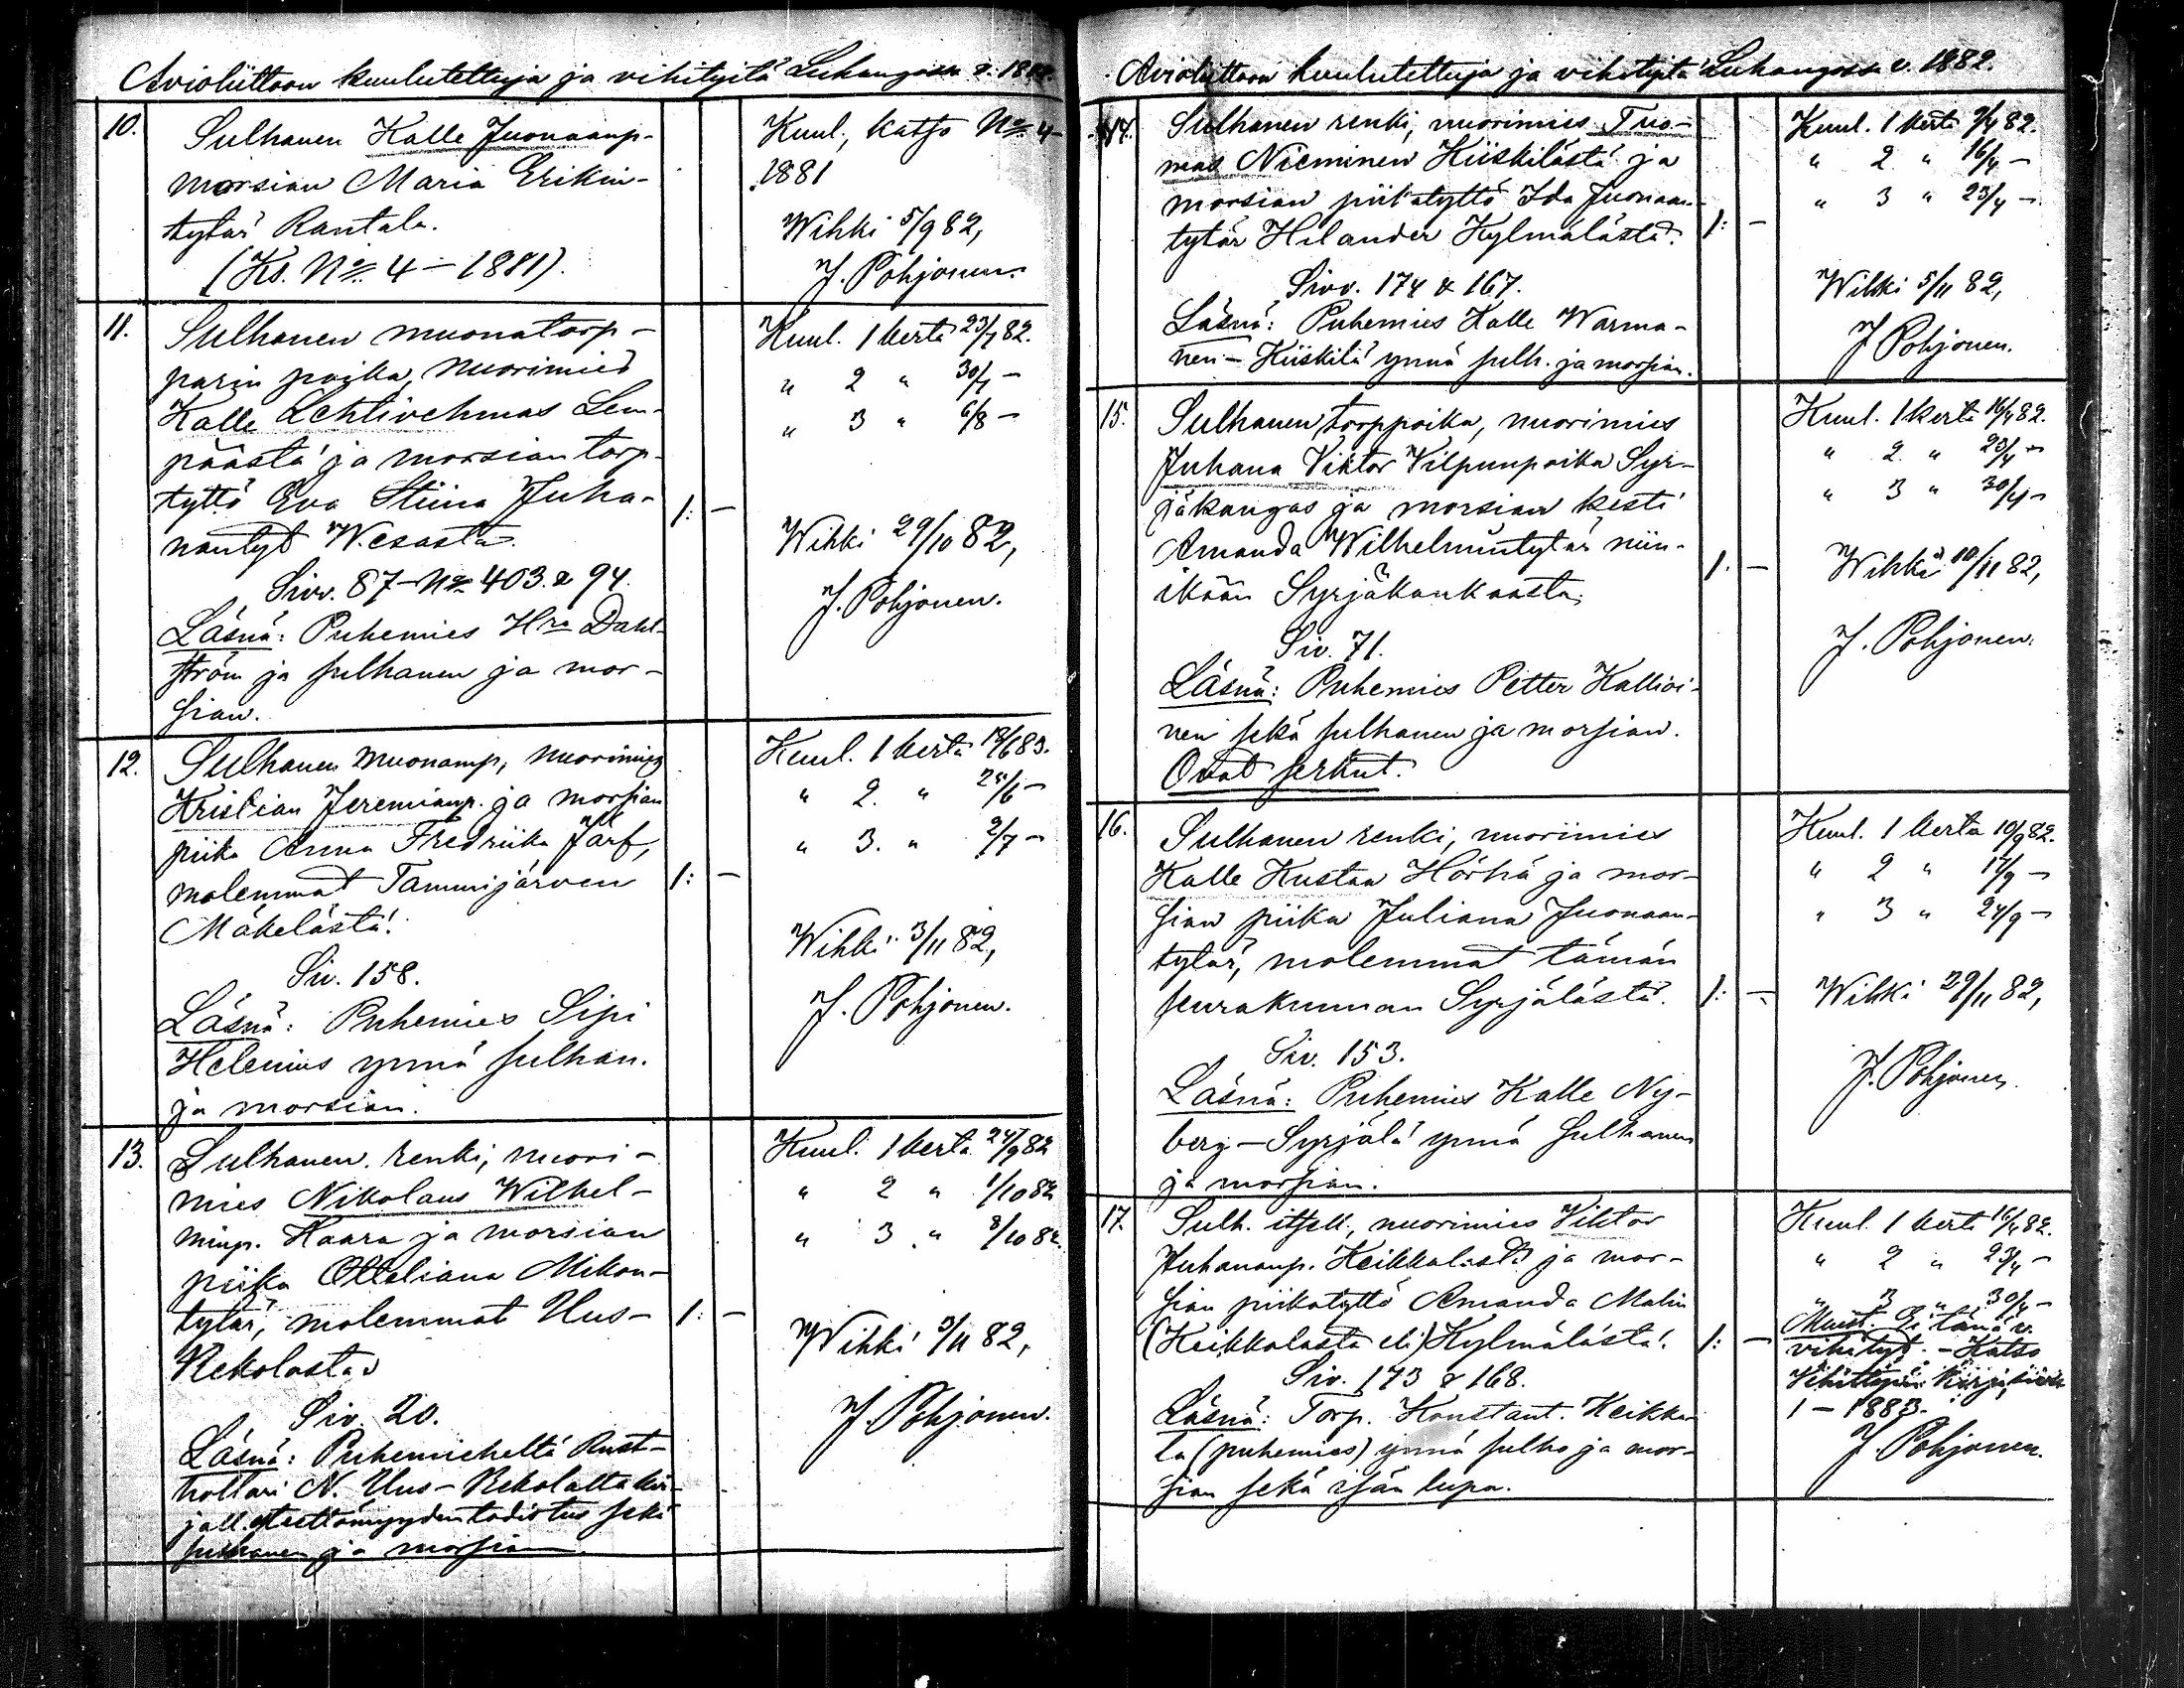 Avioliittoon kuulutettuja ja vihityitä Luhangossa v. 1882.
10.
Sulhanen Kalle Juonaanp.
morsian Maria Erikin-
tytär Rantala.
(Ks. No 4 – 1881).
Kuul., katso No 4 –
1881
Wihki 5/9 82,
J. Pohjonen.
11.
Sulhanen muonatorp-
parin poika, nuorimies
Kalle Lehtivehmas Lem-
päästä ja morsian torp.
tyttö Eva Stiina Juha-
nantyt Wesasta.
Sivv. 87 – No 403. & 94.
Läsnä: Puhemies Hra Dahl-
ström ja sulhanen ja mor-
sian.
1: –
Kuul. 1 kerta 23/7 82.
" 2 " 30/7 –
" 3 " 6/8 –
Wihki 29/10 82,
J. Pohjonen.
12.
Sulhanen muonamp, nuorimies
Kristian Jeremianp. ja morsian
piika Anna Fredriika Järf,
molemmat Tammijärven
Mäkelästä.
Siv. 158.
Läsnä: Puhemies Sipi
Helenius ynnä sulhan.
ja morsian.
1: –
Kuul. 1 kerta 18/6 83.
" 2. " 25/6 –
" 3. " 2/7 –
Wihki 3/11 82,
J. Pohjonen.
13.
Sulhanen renki, nuori-
mies Nikolaus Wilhel-
minp. Haara ja morsian
piika Otteliana Mikon-
tytär, molemmat Uus-
Rekolasta
Siv. 20.
Läsnä: Puhemieheltä Rust-
hollari N. Uus-Rekolalta kir-
jall. esteettömyyden todistus sekä
sulhanen ja morsian.
1: –
Kuul. 1 kerta 24/9 82
" 2 " 1/10 82
" 3 " 8/10 82.
Wihki 5/11 82,
J. Pohjonen.
Avioliittoon kuulutettuja ja vihityitä Luhangossa v. 1882.
14.
Sulhanen renki, nuorimies Tuo-
mas Nieminen Kiiskilästä ja
morsian piikatyttö Ida Juonaan-
tytär Helander Kylmälästä.
Sivv. 174 & 167.
Läsnä: Puhemies Kalle Warma-
nen – Kiiskilä ynnä sulh. ja morsian.
1: –
Kuul. 1 kerta 9/4 82.
" 2 " 16/4 –
" 3 " 23/4 –
Wihki 5/11 82,
J Pohjonen.
15.
Sulhanen, torppoika, nuorimies
Juhana Viktor Vilpunpoika Syr-
jäkangas ja morsian kesti
Amanda Wilhelmintytär niin-
ikään Syrjäkankaasta.
Siv. 71.
Läsnä: Puhemies Petter Kallioi-
nen sekä sulhanen ja morsian.
Ovat serkut.
1. –
Kuul. 1 kerta 16/4 82.
" 2. " 23/4 –
" 3 " 30/4 –
Wihki 10/11 82,
J. Pohjonen.
16.
Sulhanen renki, nuorimies
Kalle Kustaa Hörhä ja mor-
sian piika Juliana Juonaan-
tytär, molemmat tämän
seurakunnan Syrjälästä.
Siv. 153.
Läsnä: Puhemies Kalle Ny-
berg – Syrjälä ynnä sulhanen
ja morsian.
1: –
Kuul. 1 kerta 10/9 82.
" 2 " 17/9 –
" 3 " 24/9 –
Wihki 29/11 82,
J. Pohjonen.
17.
Sulh. itsell., nuorimies Viktor
Juhananp. Keikkalasta ja mor-
sian piikatyttö Amanda Malin
(Keikkalasta eli) Kylmälästä.
Siv. 173 & 168.
Läsnä: Torp. Konstant. Keikka-
la (puhemies) ynnä sulho ja mor-
sian sekä isän lupa.
1: –
Kuul. 1 kerta 16/4 82.
" 2 " 23/4 –
" 3 " 30/4 –
Muist. Ei tänä v.
vihityt. – Katso
Vihittyjen kirja, sivu
1 – 1883.
J. Pohjonen.